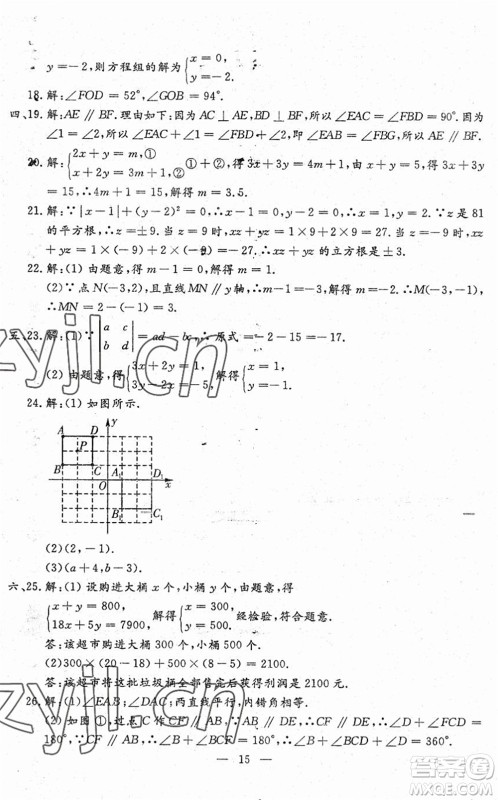 y=-2,则方程组的解为{x=0, y=-2.
18. 解:∠FOD=52°,∠GOB=94°.
四、19. 解:AE∥BF. 理由如下:因为 AC⊥AE,BD⊥BF,所以∠EAC=∠FBD=90°. 因为
∠1=∠2,所以∠EAC+∠1=∠FBD+∠2,即∠EAB=∠FBG,所以 AE∥BF.
20. 解:{2x+y=m,① x+2y=3m+1,② ①+②,得 3x+3y=4m+1,由 x+y=5,得 3x+3y
=15,∴4m+1=15,解得 m=3.5.
21. 解:∵|x-1|+(y-2)²=0,∴x-1=0,y-2=0,∴x=1,y=2. 又∵z 是 81
的平方根,∴z=9 或 z=-9. 当 z=9 时,xz+yz=1×9+2×9=27;当 z=-9 时,xz
+yz=1×(-9)+2×(-9)=-27. ∴xz+yz 的立方根是±3.
22. 解:(1) 由题意,得 m-1=0,解得 m=1.
(2)∵点 N(-3,2),且直线 MN∥y 轴,∴m-1=-3,解得 m=-2. ∴M(-3,4),
∴MN=2-(-4)=6.
五、23. 解:(1)∵|a c b d|=ad-bc,∴原式=-2-15=-17.
(2) 由题意,得{3x+2y=1, 3y-2x=-5, 解得{x=1, y=-1.
24. 解:(1) 如图所示.
A D y
P
B C O A₁ D₁ x
B₁ C₁
(2)(2,-1).
(3)(a+4,b-3).
六、25. 解:(1) 设购进大桶 x 个,小桶 y 个,由题意,得
{x+y=800, 18x+5y=7900, 解得{x=300, y=500. 经检验,符合题意.
答:该超市购进大桶 300 个,小桶 500 个.
(2)300×(20-18)+500×(8-5)=2100.
答:该超市将这批垃圾桶全部售完后获得利润是 2100 元.
26. 解:(1)∠EAB;∠DAC;两直线平行,内错角相等.
(2) 如图①,过点 C 作 CF∥AB. ∵AB∥DE,∴CF∥DE,∴∠D+∠FCD=
180°,∵CF∥AB,∴∠B+∠BCF=180°,∴∠B+∠BCD+∠D=360°.
— 15 —
zyjl.cn
答案圈
MXQE.COM